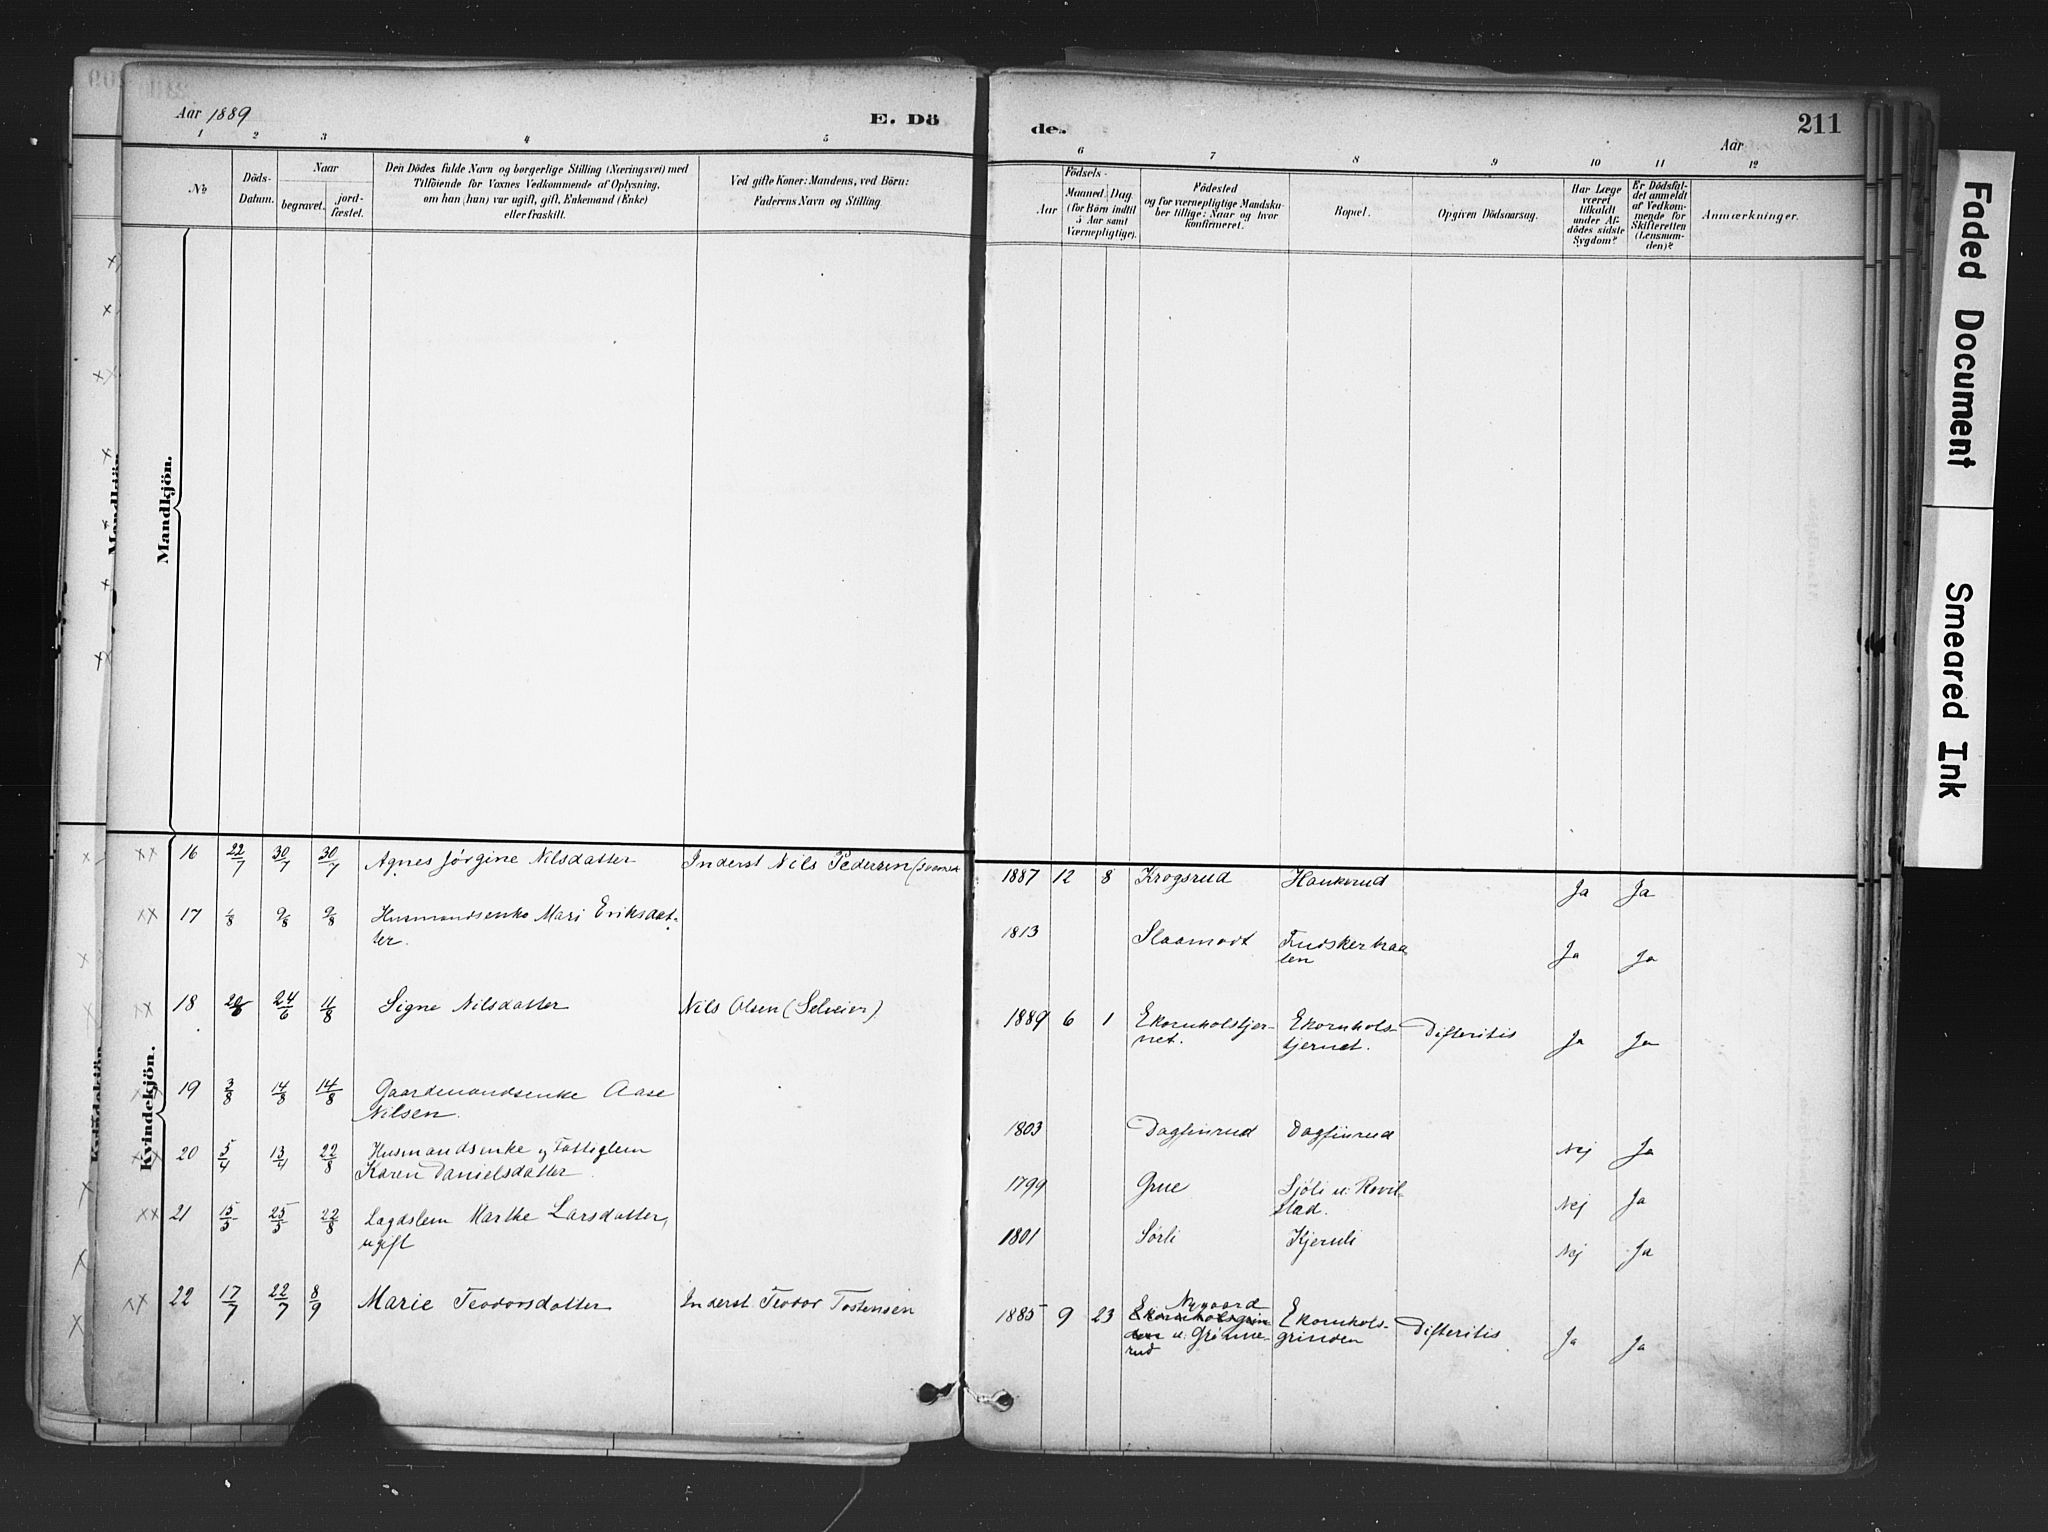 Aar 1889
E. Dö
de.
Aar
211
1 2 3 4 5 6 7 8 9 10 11 12
No
Döds-
Datum.
Naar
begravet.
jord-
fæstet.
Den Dödes fulde Navn og borgerlige Stilling (Næringsvei) med
Tilföiende for Voxnes Vedkommende af Oplysning,
om han (hun) var ugift, gift, Enkemand (Enke)
eller fraskilt.
Ved gifte Koner: Mandens, ved Börn:
Faderens Navn og Stilling
Födsels-
Aar
Maaned Dag
(for Börn indtil
5 Aar samt
Værnepligtige).
Födested
og for værnepligtige Mandska-
ber tillige: Naar og hvor
konfirmeret.
Bopæl.
Opgiven Dödsaarsag.
Har Læge
været
tilkaldt
under Af-
dödes sidste
Sygdom?
Er Dödsfal-
det anmeldt
af Vedkom-
mende for
Skifteretten
(Lensman-
den)?
Anmærkninger.
Mandkjön.
Kvindekjön.
16 22/7 30/7 30/7 Agnes Jørgine Nilsdatter Inderst Nils Pedersen (svensk
1887 12 8 Krogsrud Haukerud Ja Ja
17 1/8 9/8 9/8 Husmandsenke Mari Eriksdat-
ter.
1813 Slaamodt Ja Ja
18 24/6 11/8 Signe Nilsdatter Nils Olsen (Selveier)
1889 6 1 Ekornholstjer- Ekornhols- Difteritis Ja Ja
net. tjernet.
19 3/8 14/8 14/8 Gaardmandsenke Aase
Nilsen.
1803 Dagfinrud Dagfinrud Nej Ja
20 5/4 13/4 22/8 Husmandsenke og Fattiglem
Karen Danielsdatter.
1799 Grue Sjöli u. Rovil-
stad. Nej Ja
21 15/5 25/5 22/8 Lægdslem Marthe Larsdatter,
ugift
1801 Sørli Kjernli Nej Ja
22 17/7 22/7 8/9 Marie Teodorsdatter Inderst Teodor Tostensen
Nygaard
1885 9 23 Ekornholsgrin Ekornhols- Difteritis Ja Ja
den u. Grönne- grinden
rud
Faded Document
Smeared Ink